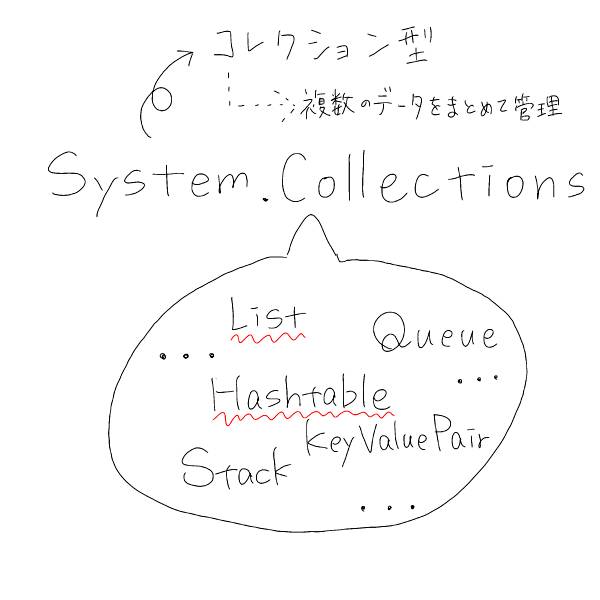 コレクション型
複数のデータをまとめて管理
System.Collections
List
Queue
...
...
Hashtable
KeyValuePair
Stack
...